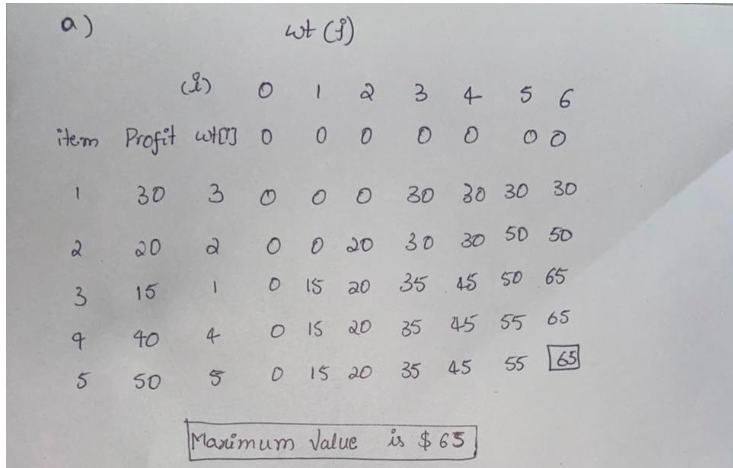 a)
wt (j)
(i) 0 1 2 3 4 5 6
item Profit wt[i] 0 0 0 0 0 0 0
1 30 3 0 0 0 30 30 30 30
2 20 2 0 0 20 30 30 50 50
3 15 1 0 15 20 35 45 50 65
4 40 4 0 15 20 35 45 55 65
5 50 5 0 15 20 35 45 55 65
Maximum Value is $65